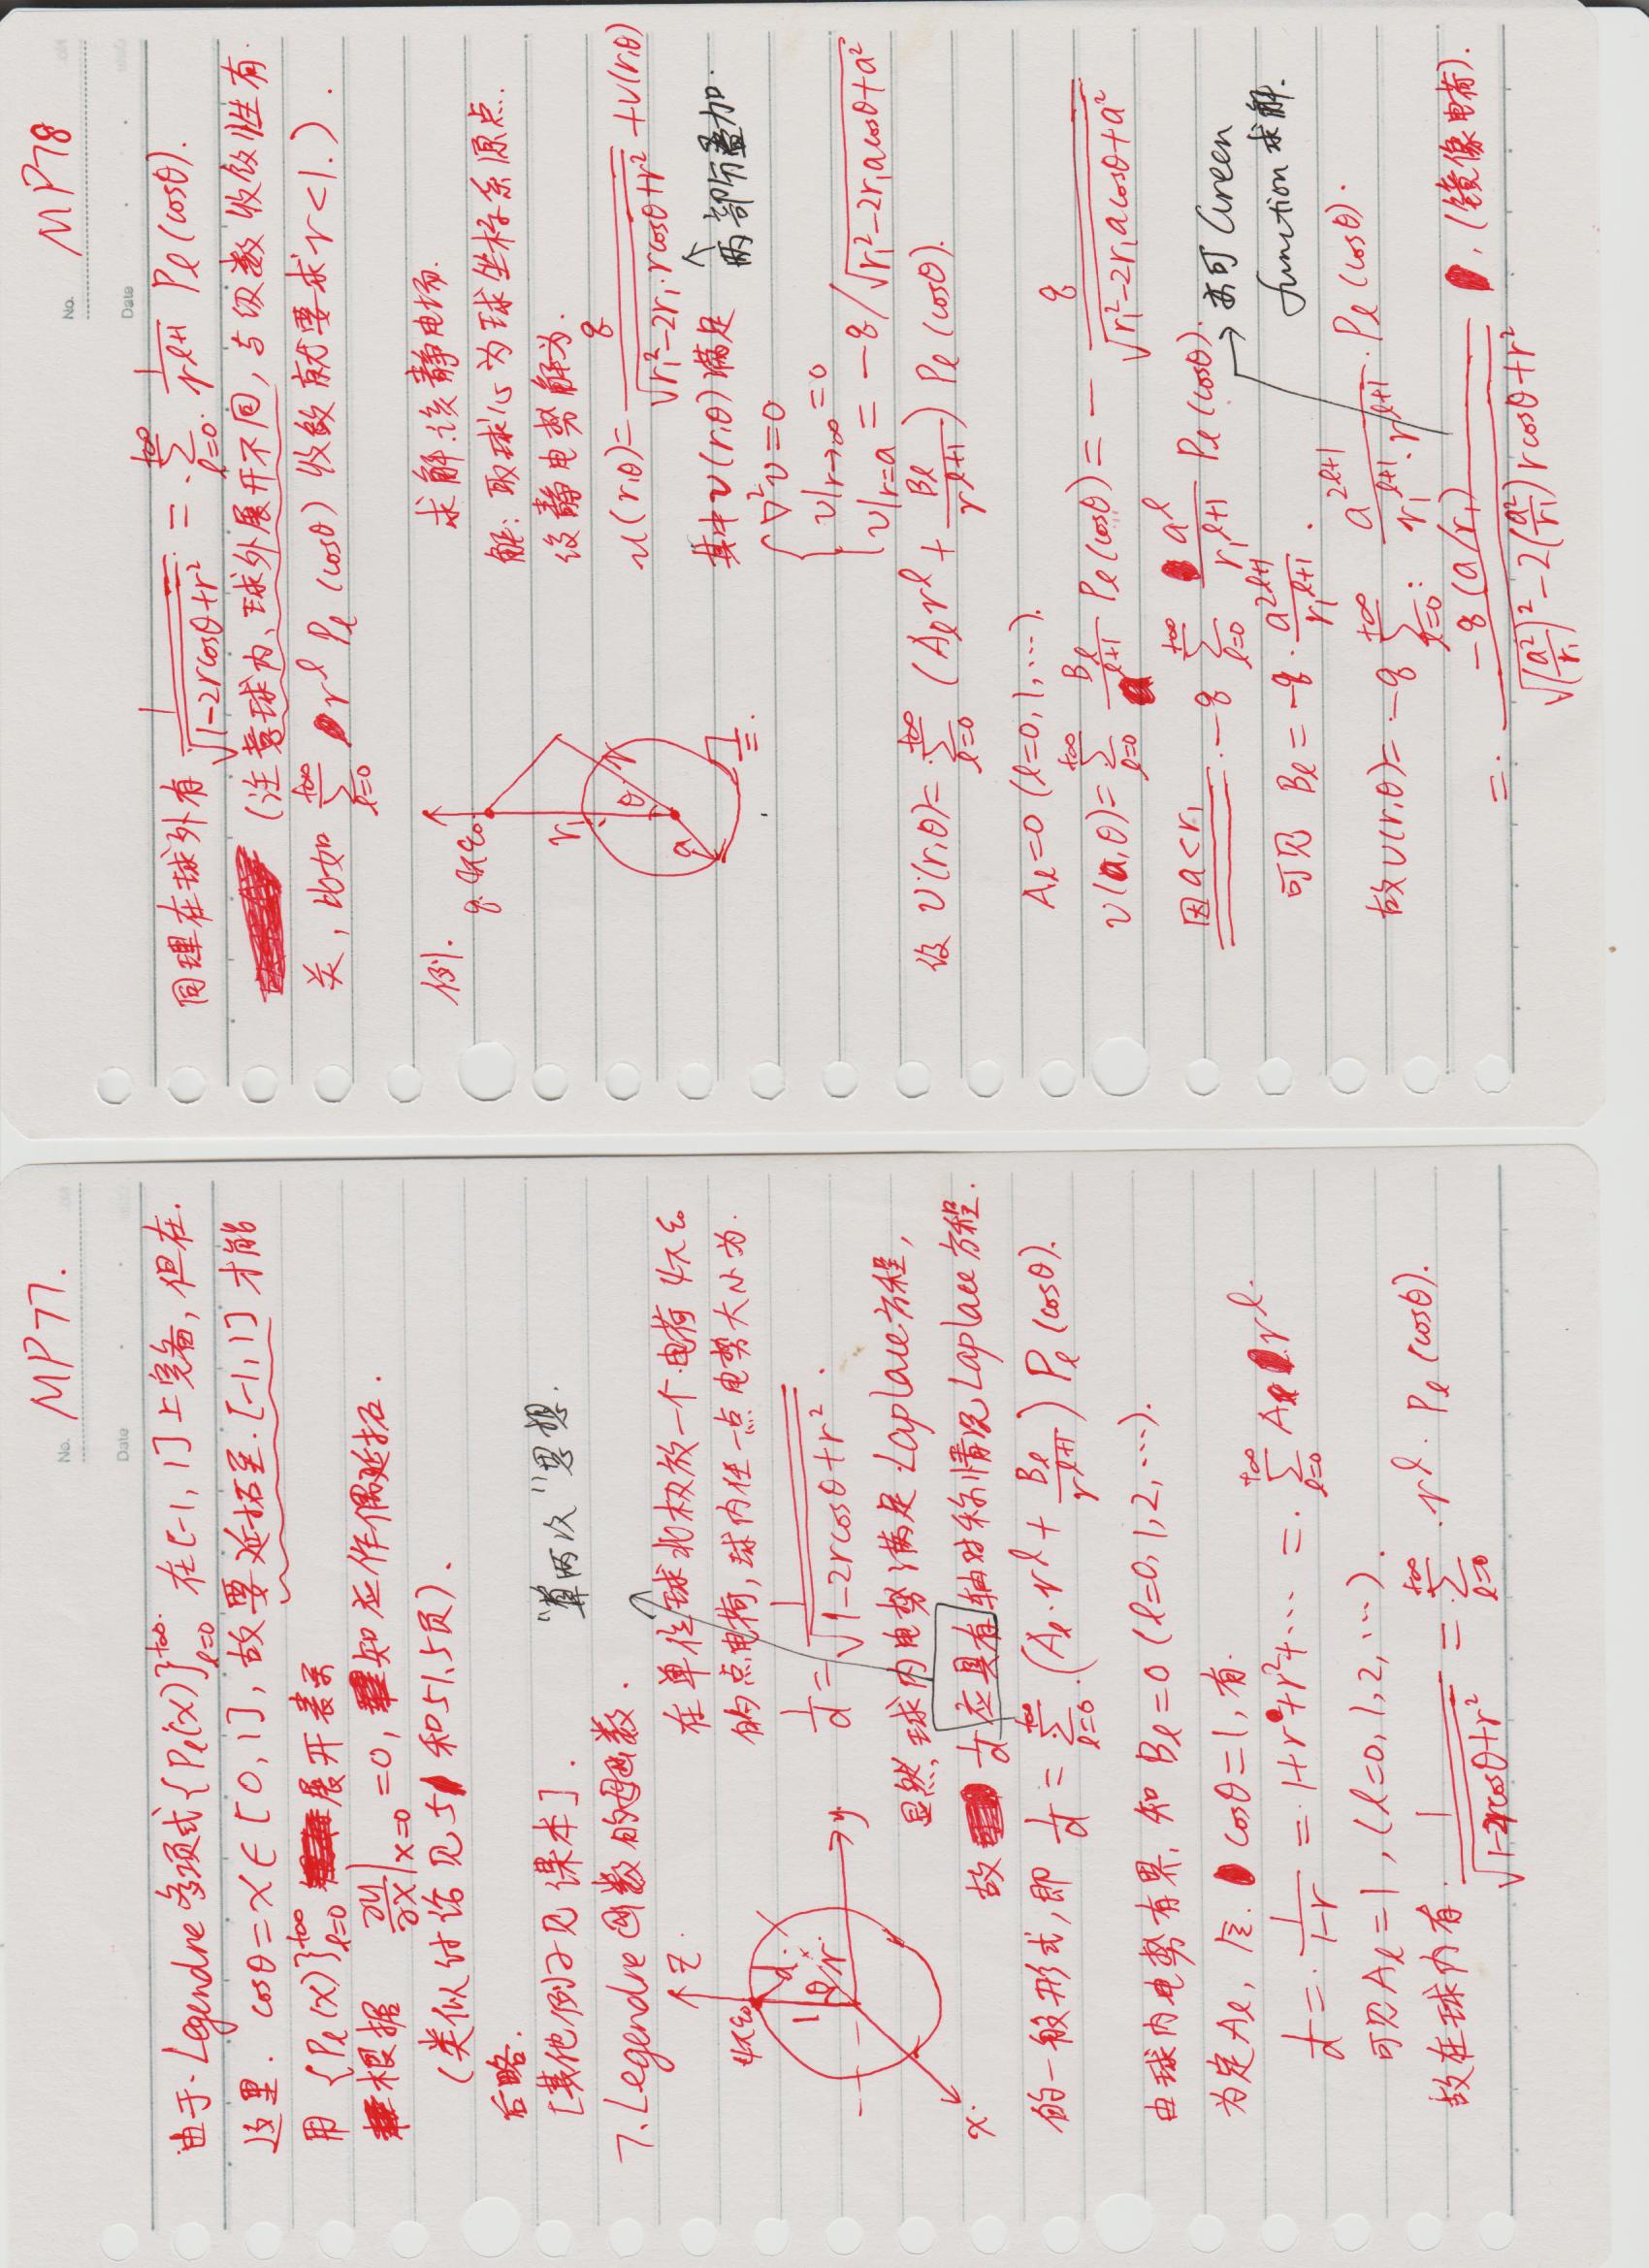 No. MP77.
Date
由于 Legendre 多项式 {Pℓ(x)}_{ℓ=0}^{+∞} 在[-1, 1]上完备, 但在
这里. cosθ=x∈[0, 1], 故要延拓至.[-1, 1] 才能
用 {Pℓ(x)}_{ℓ=0}^{+∞} 展开表示
根据 ∂u/∂x|_{x=0} =0, 知应作偶延拓.
(类似讨论见 51 和 51.5页).
后略.
[其他例子见课本].
“算两次”思想.
7. Legendre 函数的母函数.
z
4πε₀
d
1
θ
r
y
x
在单位球北极放一个电荷 4πε₀
的点电荷, 球内任一点电势大小为.
1/d = 1/√(1-2rcosθ+r²).
显然, 球内电势满足 Laplace 方程,
故 1/d 应具有轴对称情况 Laplace 方程.
的一般形式, 即 1/d = Σ_{ℓ=0}^{+∞} (Aℓ·r^ℓ + Bℓ/r^{ℓ+1}) Pℓ(cosθ).
由球内电势有界, 知 Bℓ=0 (ℓ=0, 1, 2, ⋯).
为定Aℓ, 令 cosθ=1, 有.
1/d = 1/(1-r) = 1+r+r²+⋯ = Σ_{ℓ=0}^{+∞} Aℓ r^ℓ.
可见 Aℓ=1, (ℓ=0, 1, 2, ⋯).
故在球内有. 1/√(1-2rcosθ+r²) = Σ_{ℓ=0}^{+∞} r^ℓ · Pℓ(cosθ).
No. MP78
Date
同理在球外有 1/√(1-2rcosθ+r²) = Σ_{ℓ=0}^{+∞} 1/r^{ℓ+1} Pℓ(cosθ).
(注意球内、球外展开不同, 与级数收敛性有
关, 比如 Σ_{ℓ=0}^{+∞} r^ℓ Pℓ(cosθ) 收敛就要求 r<1.).
例.
q·4πε₀
r₁
θ
r
a
求解该静电场.
解: 取球心为球坐标系原点.
设静电势解为.
u(r,θ)= q/√(r₁²-2r₁·rcosθ+r²) + v(r,θ)
其中 v(r,θ) 满足
两部分叠加.
∇²v=0
v|_{r→∞}=0
v|_{r=a} = -q/√(r₁²-2r₁acosθ+a²)
设 v(r,θ)= Σ_{ℓ=0}^{+∞} (Aℓ r^ℓ + Bℓ/r^{ℓ+1}) Pℓ(cosθ).
Aℓ=0 (ℓ=0, 1, ⋯).
v(a,θ)= Σ_{ℓ=0}^{+∞} Bℓ/a^{ℓ+1} Pℓ(cosθ) = - q/√(r₁²-2r₁acosθ+a²)
因a<r₁ -q Σ_{ℓ=0}^{+∞} a^ℓ/r₁^{ℓ+1} Pℓ(cosθ).
亦可 Green
function 求解.
可见 Bℓ = -q· a^{2ℓ+1}/r₁^{ℓ+1}.
故 v(r,θ)= -q Σ_{ℓ=0}^{+∞} a^{2ℓ+1}/(r₁^{ℓ+1}·r^{ℓ+1}) · Pℓ(cosθ).
= -q(a/r₁)/√((a²/r₁)²-2(a²/r₁)rcosθ+r²). (镜像电荷).